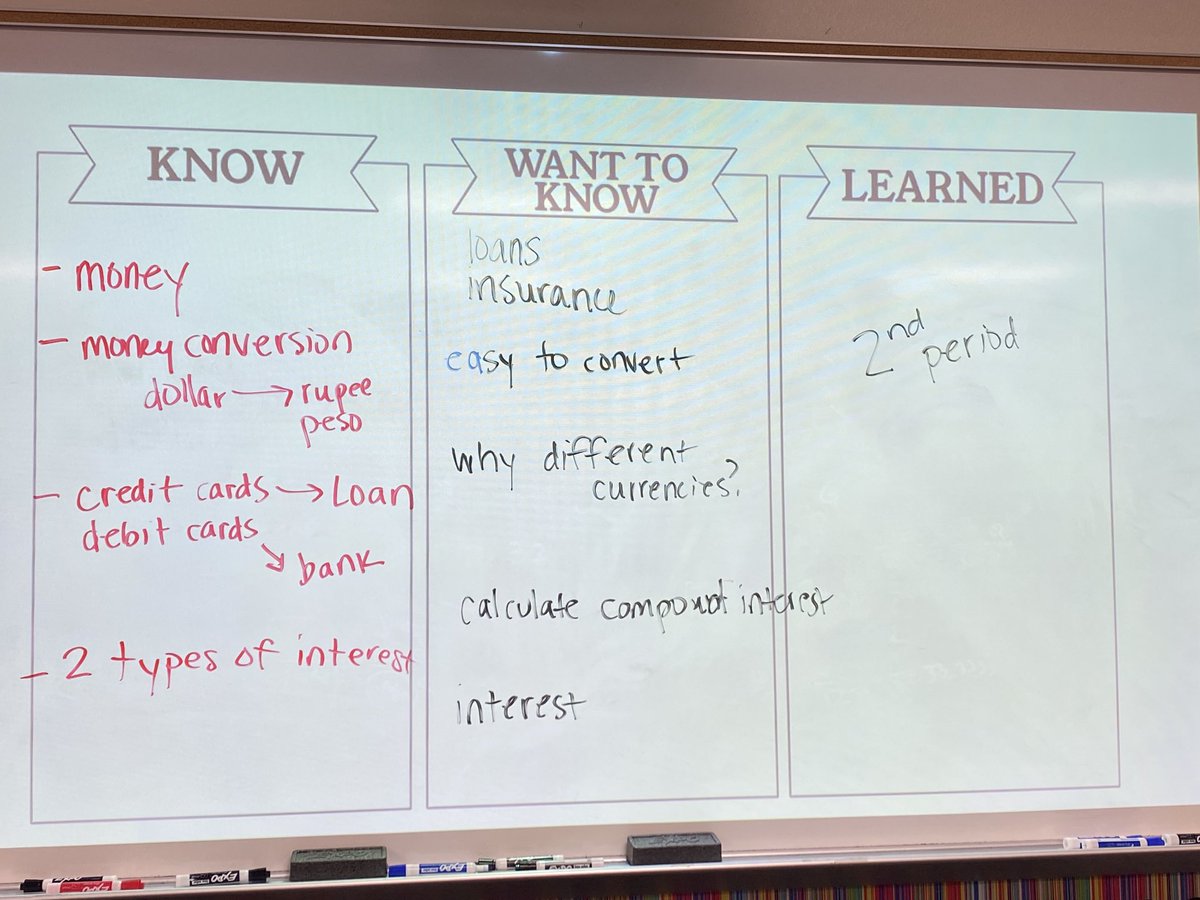 KNOW
- money
- money conversion
dollar → rupee
peso
- credit cards → Loan
debit cards
↘ bank
- 2 types of interest
WANT TO
KNOW
loans
insurance
easy to convert
why different
currencies?
calculate compount interest
interest
LEARNED
2nd
period
EXPO
EXPO